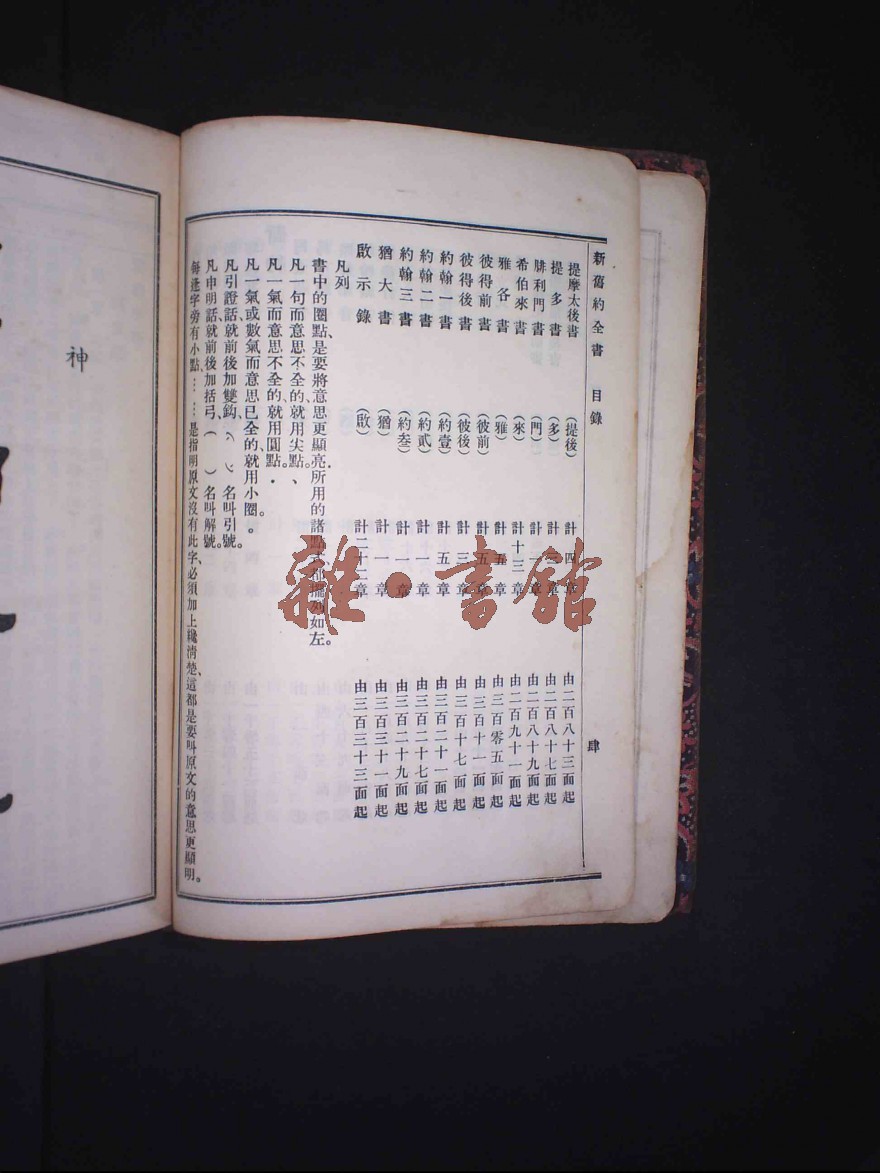 新舊約全書 目錄 肆
提摩太後書 （提後） 計四章 由二百八十三面起
提多書 （多） 計三章 由二百八十七面起
腓利門書 （門） 計一章 由二百八十九面起
希伯來書 （來） 計十三章 由二百九十一面起
雅各書 （雅） 計五章 由三百零五面起
彼得前書 （彼前） 計五章 由三百十一面起
彼得後書 （彼後） 計三章 由三百十七面起
約翰一書 （約壹） 計五章 由三百二十一面起
約翰二書 （約貳） 計一章 由三百二十七面起
約翰三書 （約叁） 計一章 由三百二十九面起
猶大書 （猶） 計一章 由三百三十一面起
啟示錄 （啟） 計二十二章 由三百三十三面起
凡列
書中的圈點、是要將意思更顯亮．所用的諸點、都擺列如左。
凡一句而意思不全的、就用尖點。、
凡一氣而意思不全的、就用圓點。．
凡一氣或數氣而意思已全的、就用小圈。。
凡引證話、就前後加雙鈎、名叫引號。
凡申明話、就前後加括弓、（ ）名叫解號。
每逢字旁有小點、……是指明原文沒有此字、必須加上纔清楚、這都是要叫原文的意思更顯明。
神
雜·書館